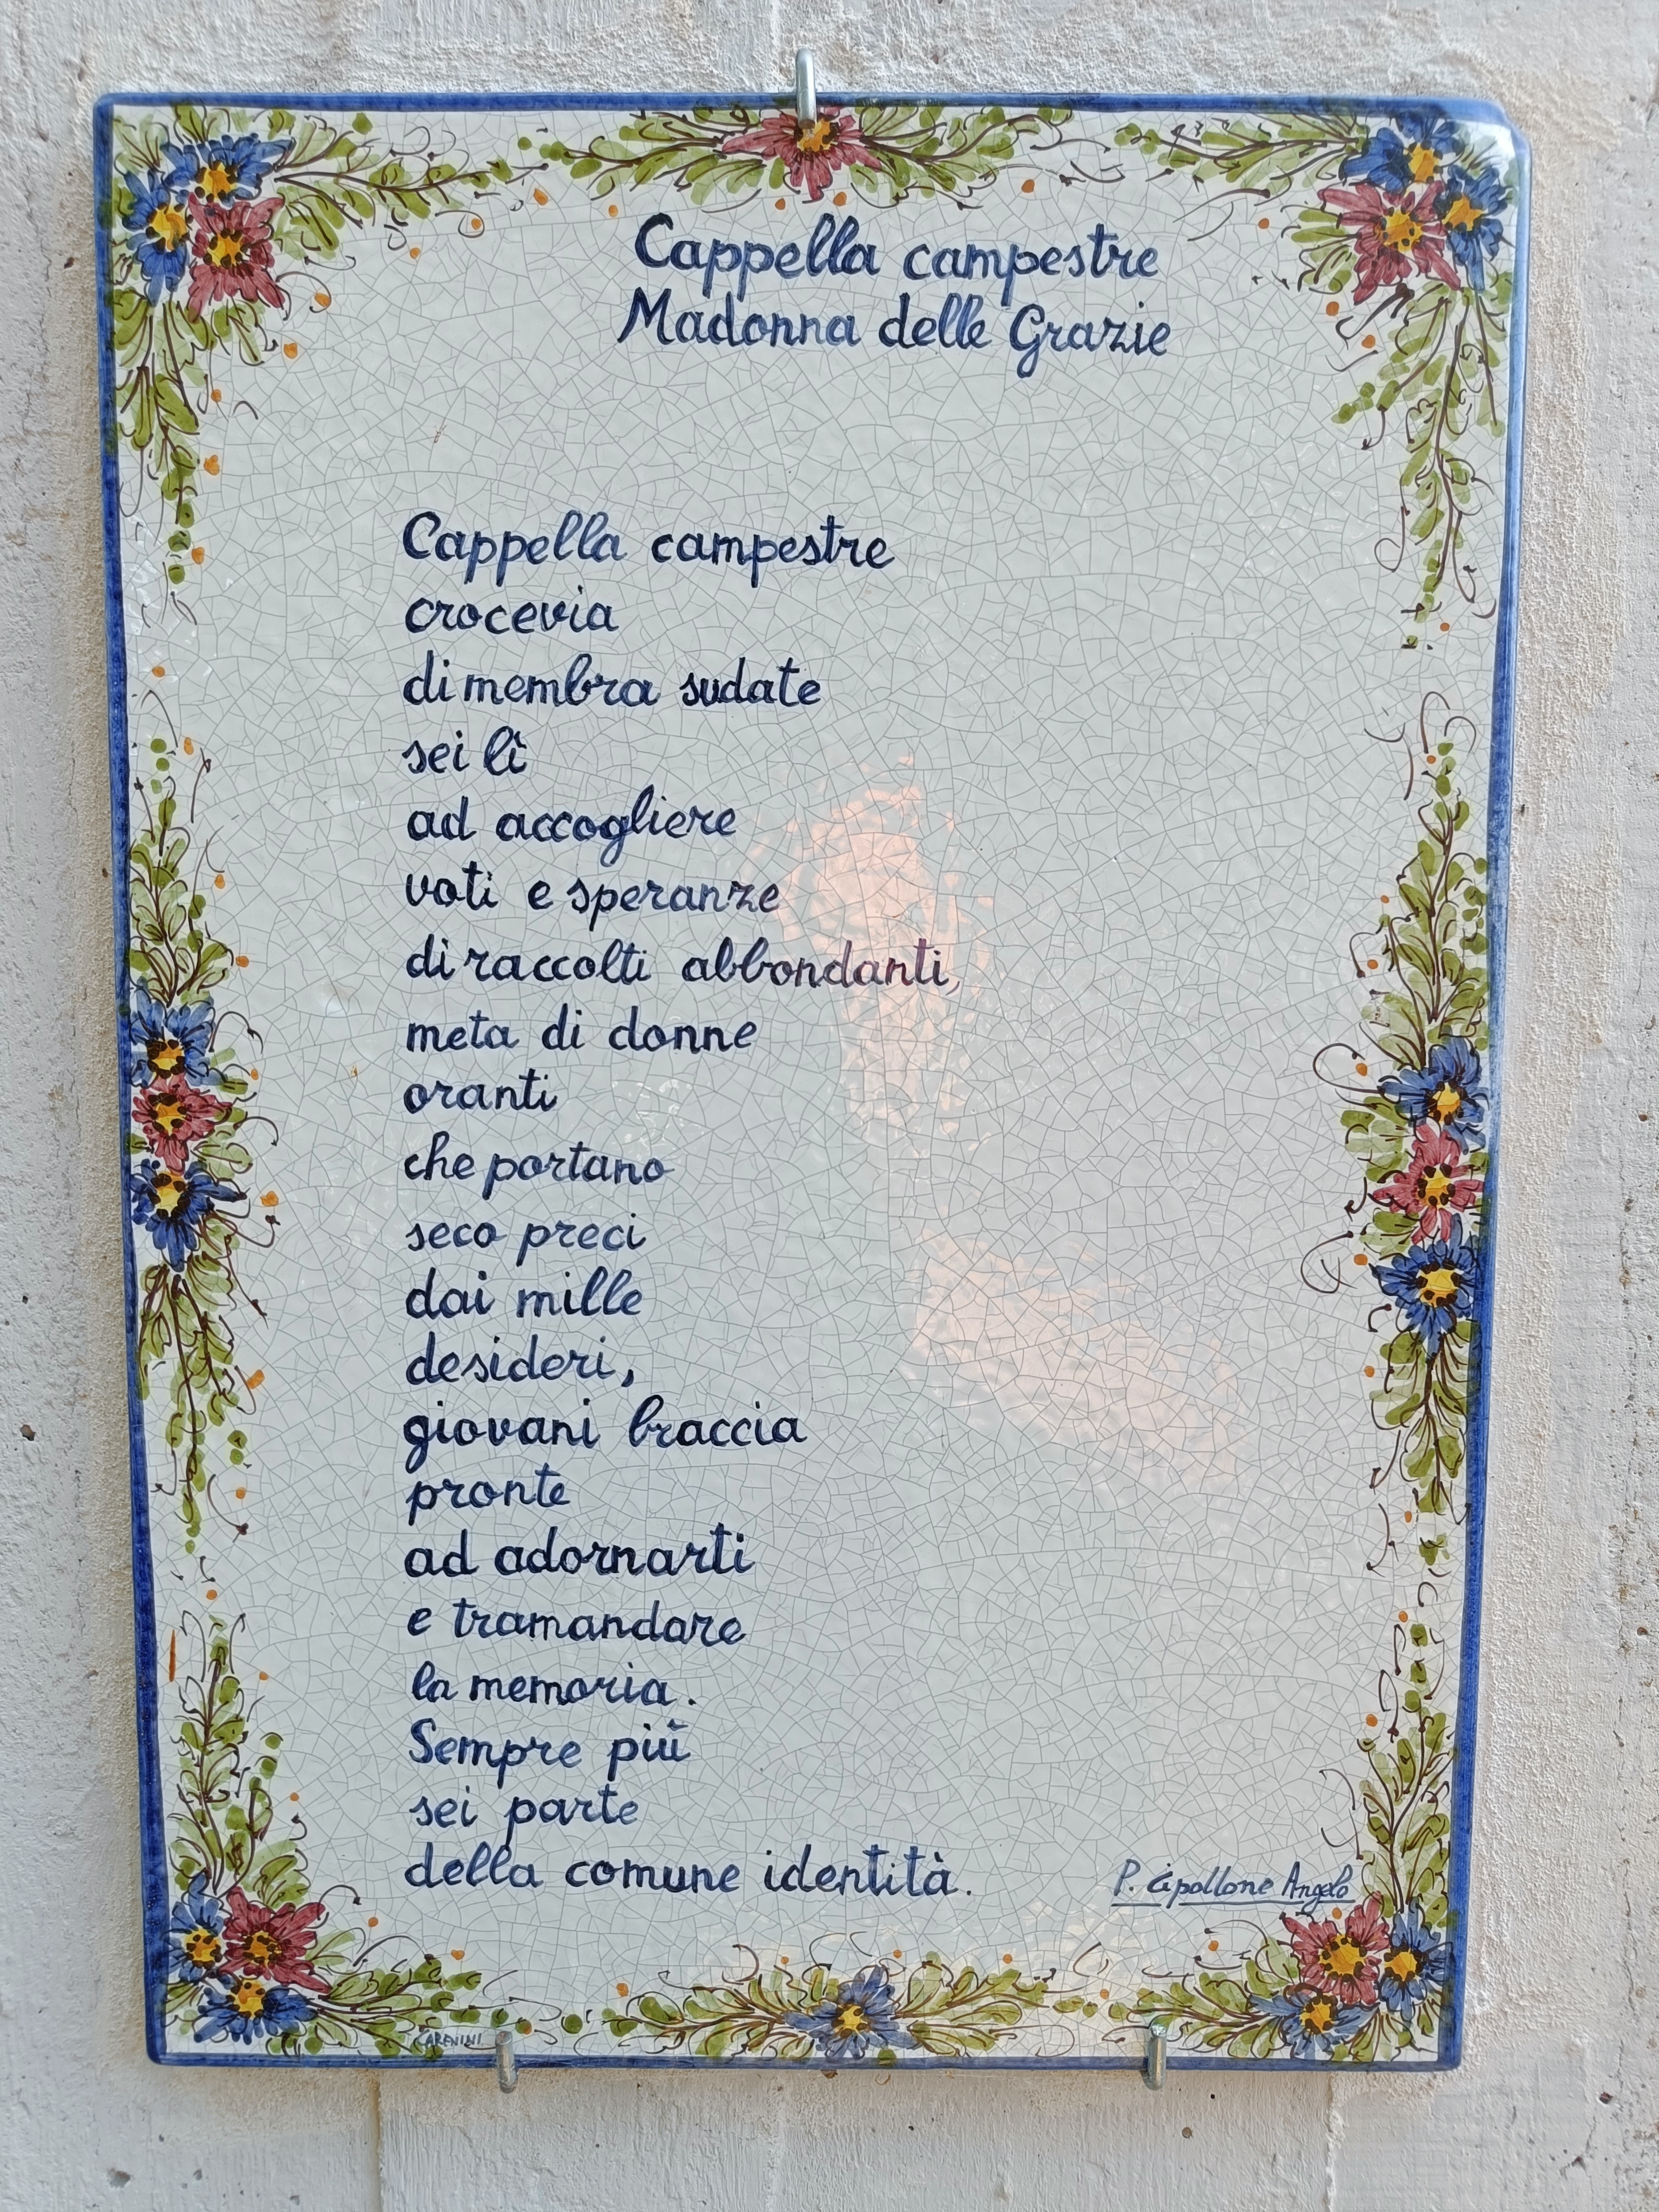 Cappella campestre
Madonna delle Grazie
Cappella campestre
crocevia
di membra sudate
sei lì
ad accogliere
voti e speranze
di raccolti abbondanti,
meta di donne
oranti
che portano
seco preci
dai mille
desideri,
giovani braccia
pronte
ad adornarti
e tramandare
la memoria.
Sempre più
sei parte
della comune identità.
P. Cipollone Angelo
CARENINI